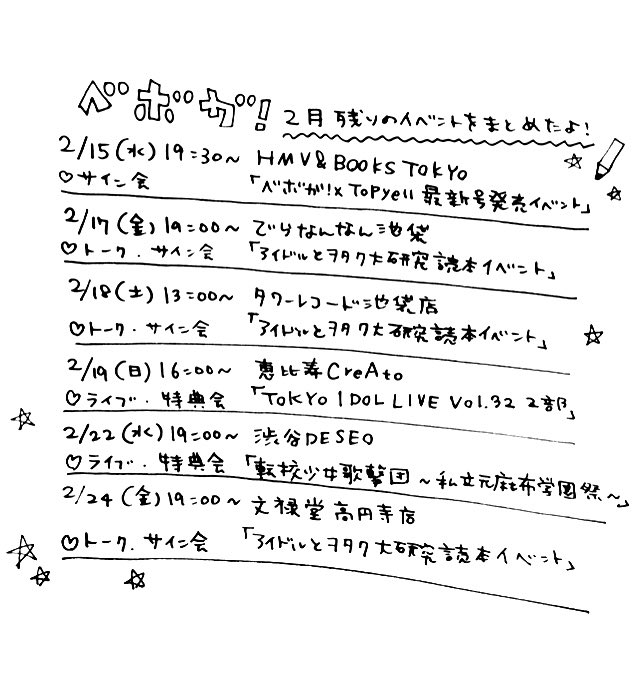 ベボガ！
2月 残りのイベントをまとめたよ！
2/15(水) 19:30〜 HMV&BOOKS TOKYO
♡サイン会 「ベボガ!×Topyell 最新号発売イベント」
2/17(金) 19:00〜 でらなんなん池袋
♡トーク．サイン会 「アイドルとヲタク大研究読本イベント」
2/18(土) 13:00〜 タワーレコード池袋店
♡トーク．サイン会 「アイドルとヲタク大研究読本イベント」
2/19(日) 16:00〜 恵比寿CreAto
♡ライブ．特典会 「TOKYO IDOL LIVE Vol.32 2部」
2/22(水) 19:00〜 渋谷DESEO
♡ライブ．特典会 「転校少女歌撃団 〜私立元麻布学園祭〜」
2/24(金) 19:00〜 文禄堂 高円寺店
♡トーク．サイン会 「アイドルとヲタク大研究読本イベント」